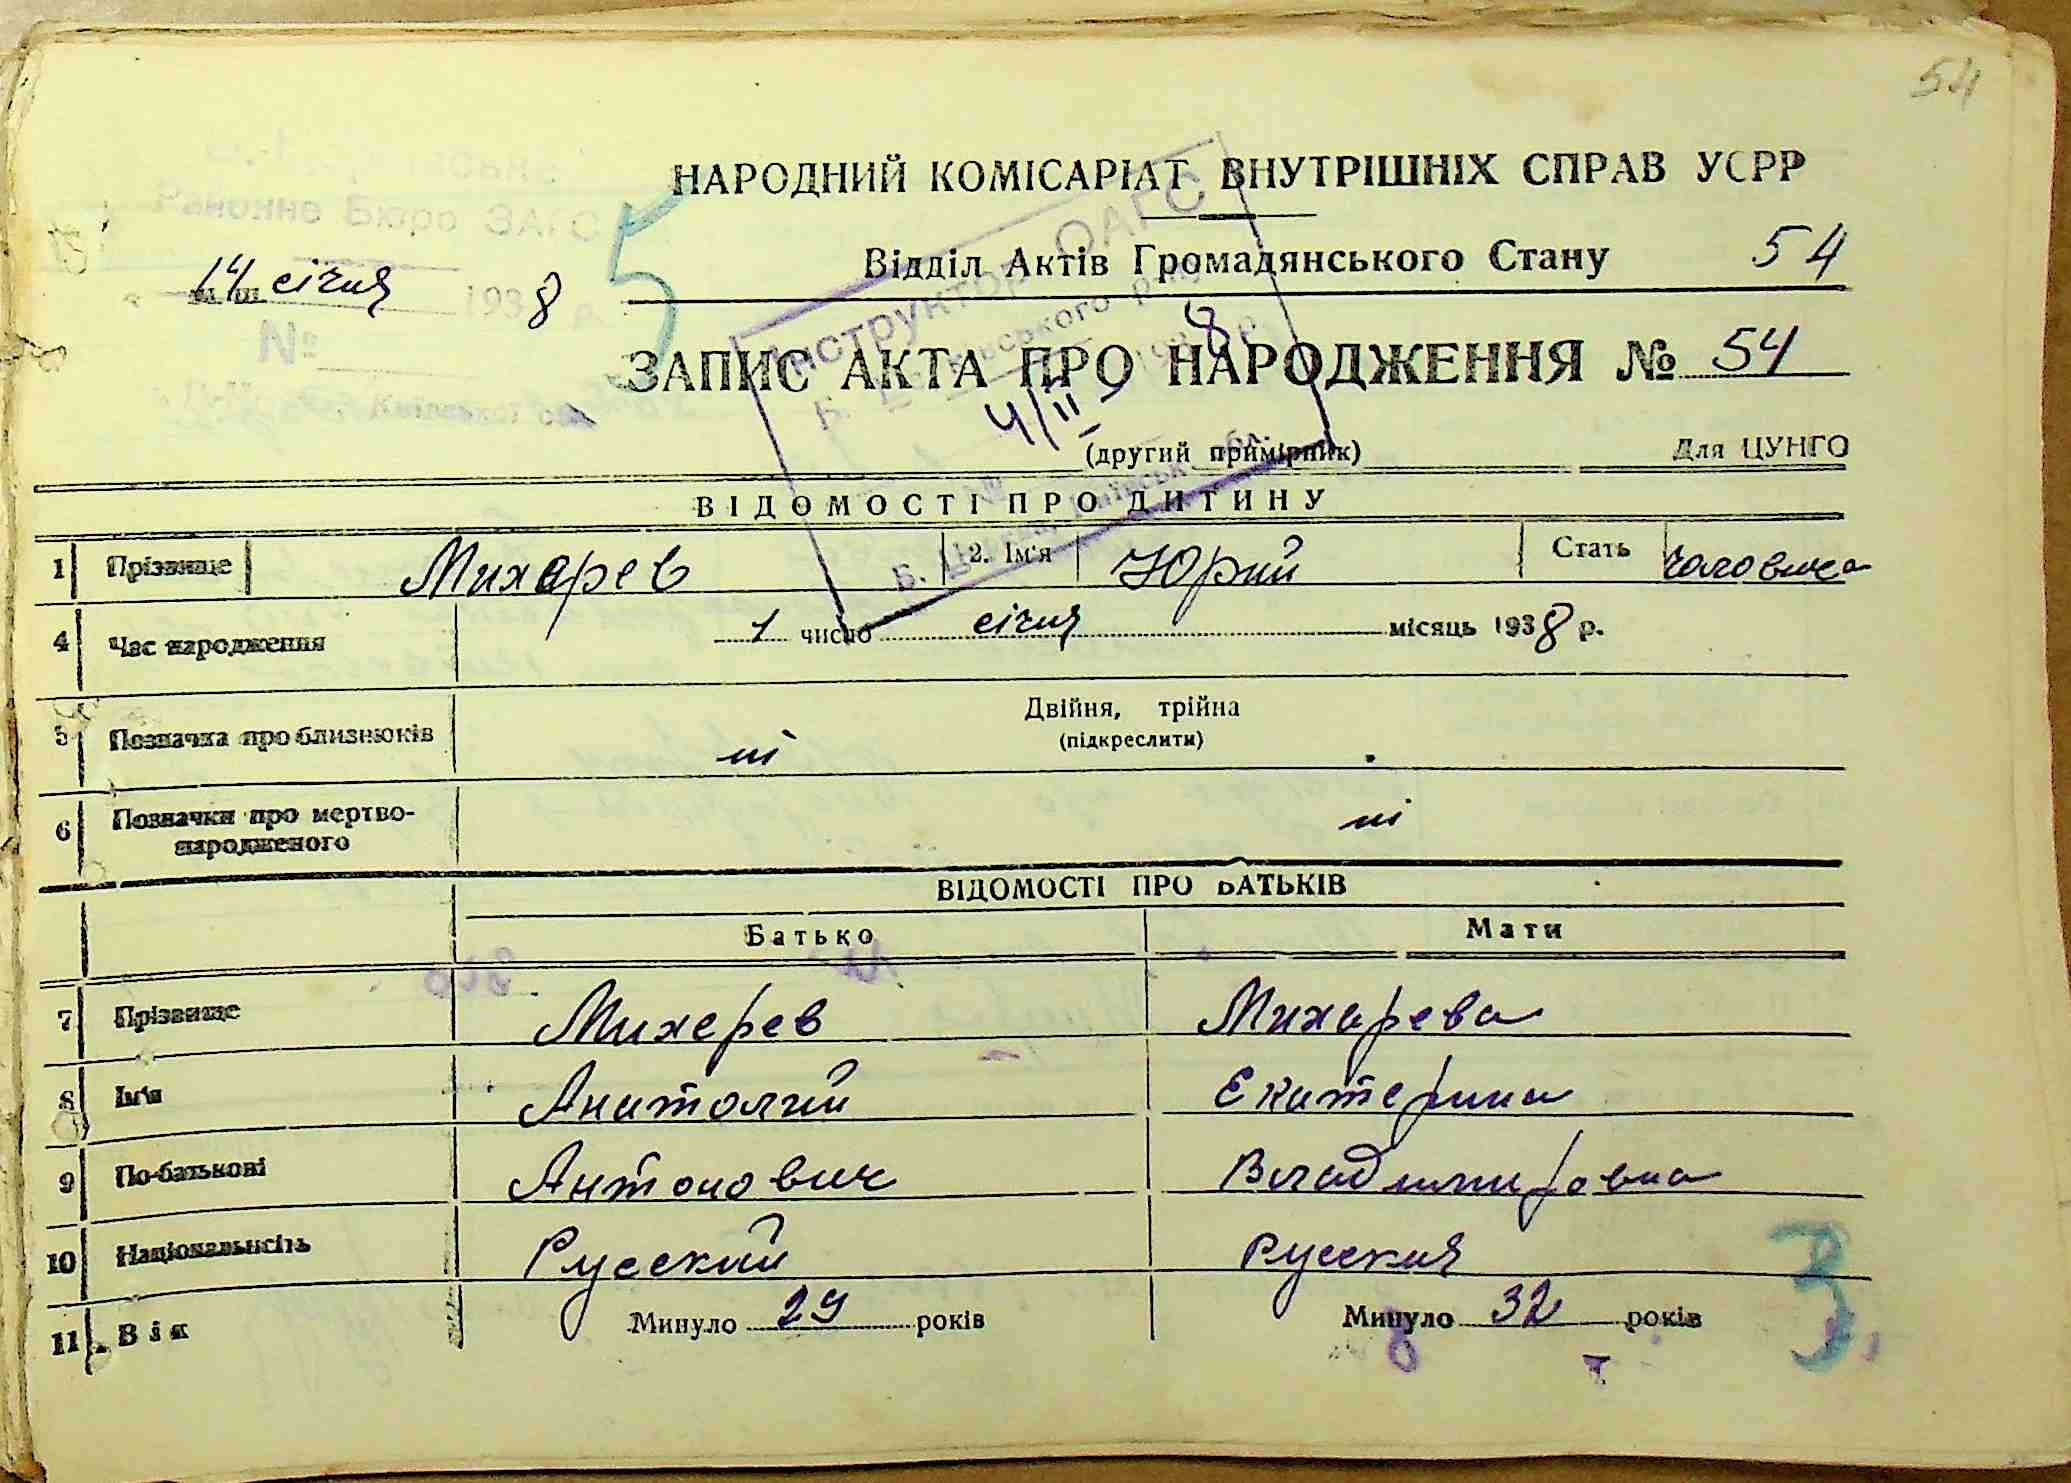 54
НАРОДНИЙ КОМІСАРІАТ ВНУТРІШНІХ СПРАВ УСРР
Районне Бюро ЗАГС
14 січня 1938
5
Відділ Актів Громадянського Стану 54
№
Інструктор ОАГС
ЗАПИС АКТА ПРО НАРОДЖЕННЯ № 54
4/II 8
(другий примірник) Для ЦУНГО
ВІДОМОСТІ ПРО ДИТИНУ
1 Прізвище Михарев 2. Ім'я Юрий Стать чоловіча
4 Час народження 1 число січня місяць 1938 р.
5 Позначка про близнюків ні Двійня, трійна
(підкреслити)
6 Позначки про мертво-
народженого ні
ВІДОМОСТІ ПРО БАТЬКІВ
Батько Мати
7 Прізвище Михарев Михарева
8 Ім'я Анатолий Екатерина
9 По-батькові Антонович Владимировна
10 Національність Русский Русская
11. Вік Минуло 29 років Минуло 32 років
3